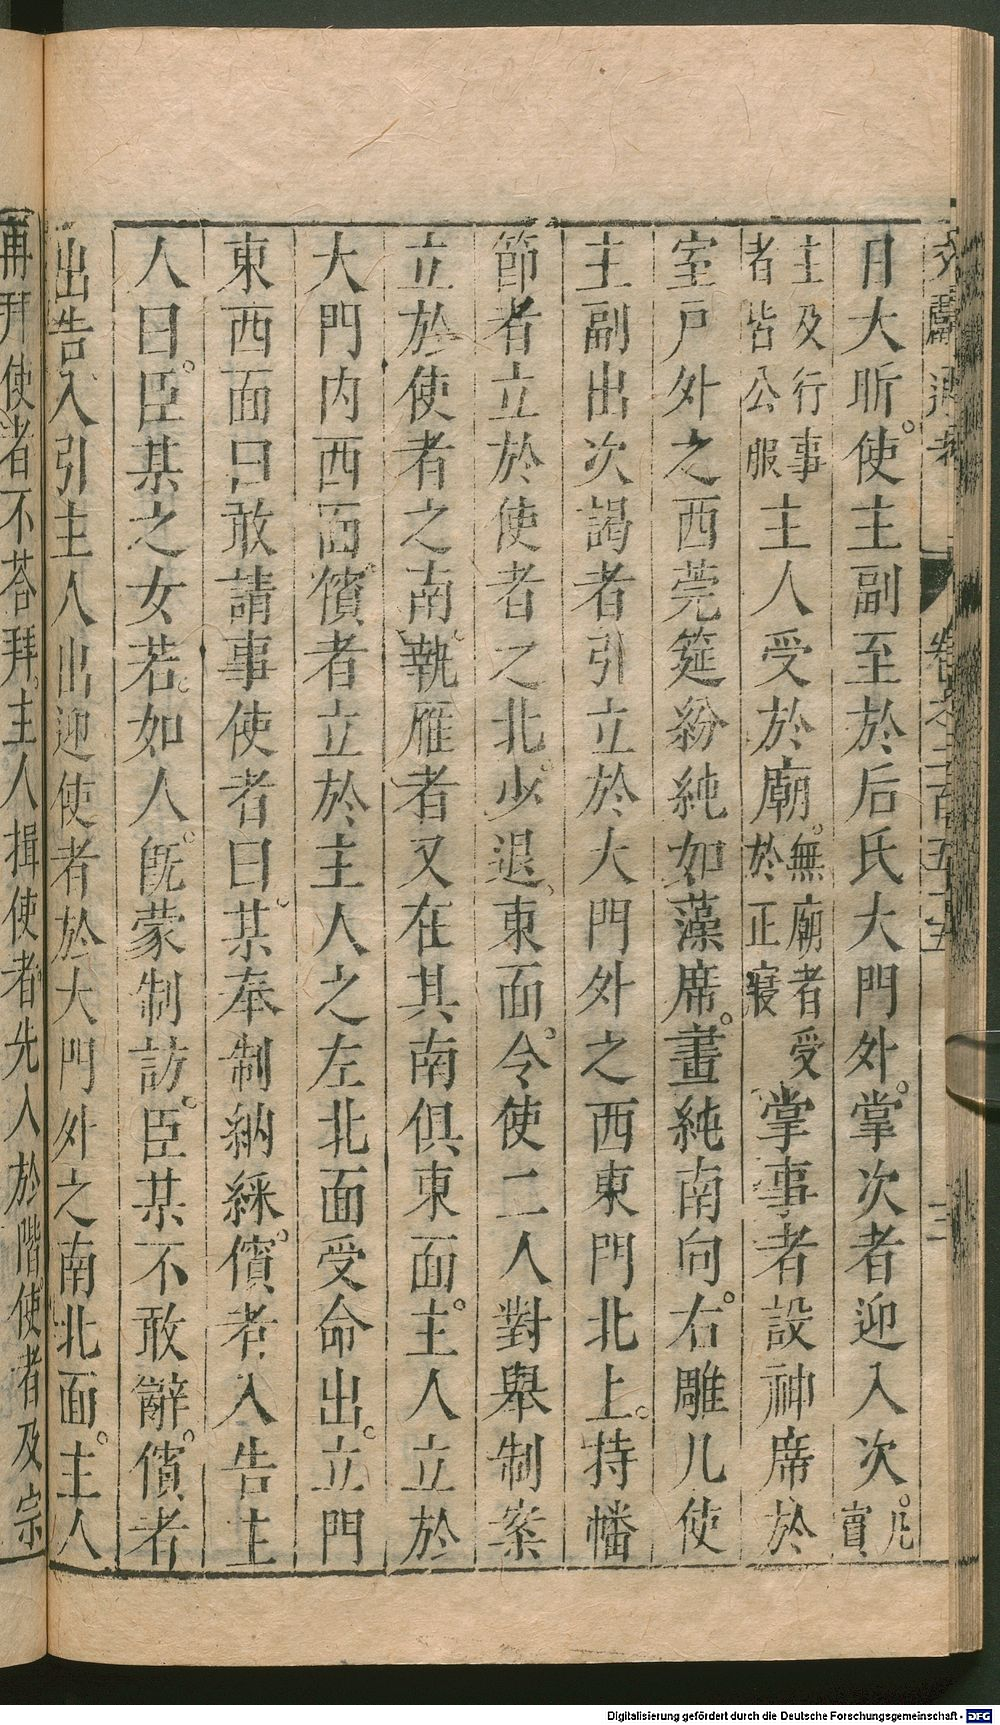 文獻通考 卷之二百五十五 三
日大昕使主副至於后氏大門外掌次者迎入次凡賓
主及行事者皆公服主人受於廟無廟者受於正寢掌事者設神席於
室戶外之西莞筵紛純如藻席畫純南向右雕几使
主副出次謁者引立於大門外之西東門北上持幡
節者立於使者之北少退東面令使二人對舉制案
立於使者之南執雁者又在其南俱東面主人立於
大門內西面儐者立於主人之左北面受命出立門
東西面曰敢請事使者曰某奉制納綵儐者入告主
人曰臣某之女若如人旣蒙制訪臣某不敢辭儐者
出告入引主人出迎使者於大門外之南北面主人
再拜使者不荅拜主人揖使者先入於階使者及宗
Digitalisierung gefördert durch die Deutsche Forschungsgemeinschaft - DFG